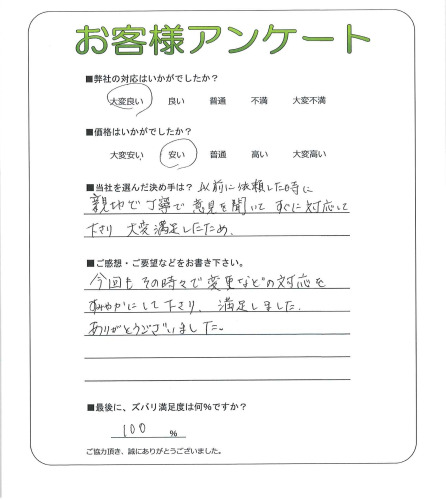 お客様アンケート
■弊社の対応はいかがでしたか？
大変良い 良い 普通 不満 大変不満
■価格はいかがでしたか？
大変安い 安い 普通 高い 大変高い
■当社を選んだ決め手は？ 以前に依頼した時に
親切で丁寧で意見を聞いて すぐに対応して
下さり 大変満足したため.
■ご感想・ご要望などをお書き下さい。
今回も その時々で変更などの対応を
すみやかにして下さり、満足しました.
ありがとうございました.
■最後に、ズバリ満足度は何％ですか？
100 ％
ご協力頂き、誠にありがとうございました。